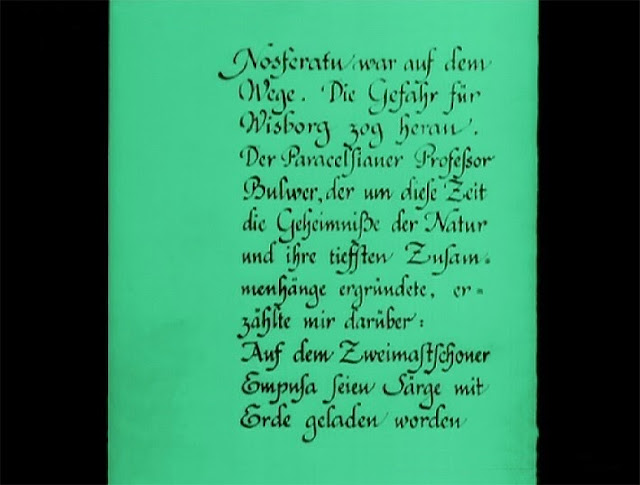 Nosferatu war auf dem
Wege. Die Gefahr für
Wisborg zog heran.
Der Paracelsianer Professor
Bulwer, der um diese Zeit
die Geheimniße der Natur
und ihre tiefsten Zusam-
menhänge ergründete, er-
zählte mir darüber:
Auf dem Zweimastschoner
Empusa seien Särge mit
Erde geladen worden